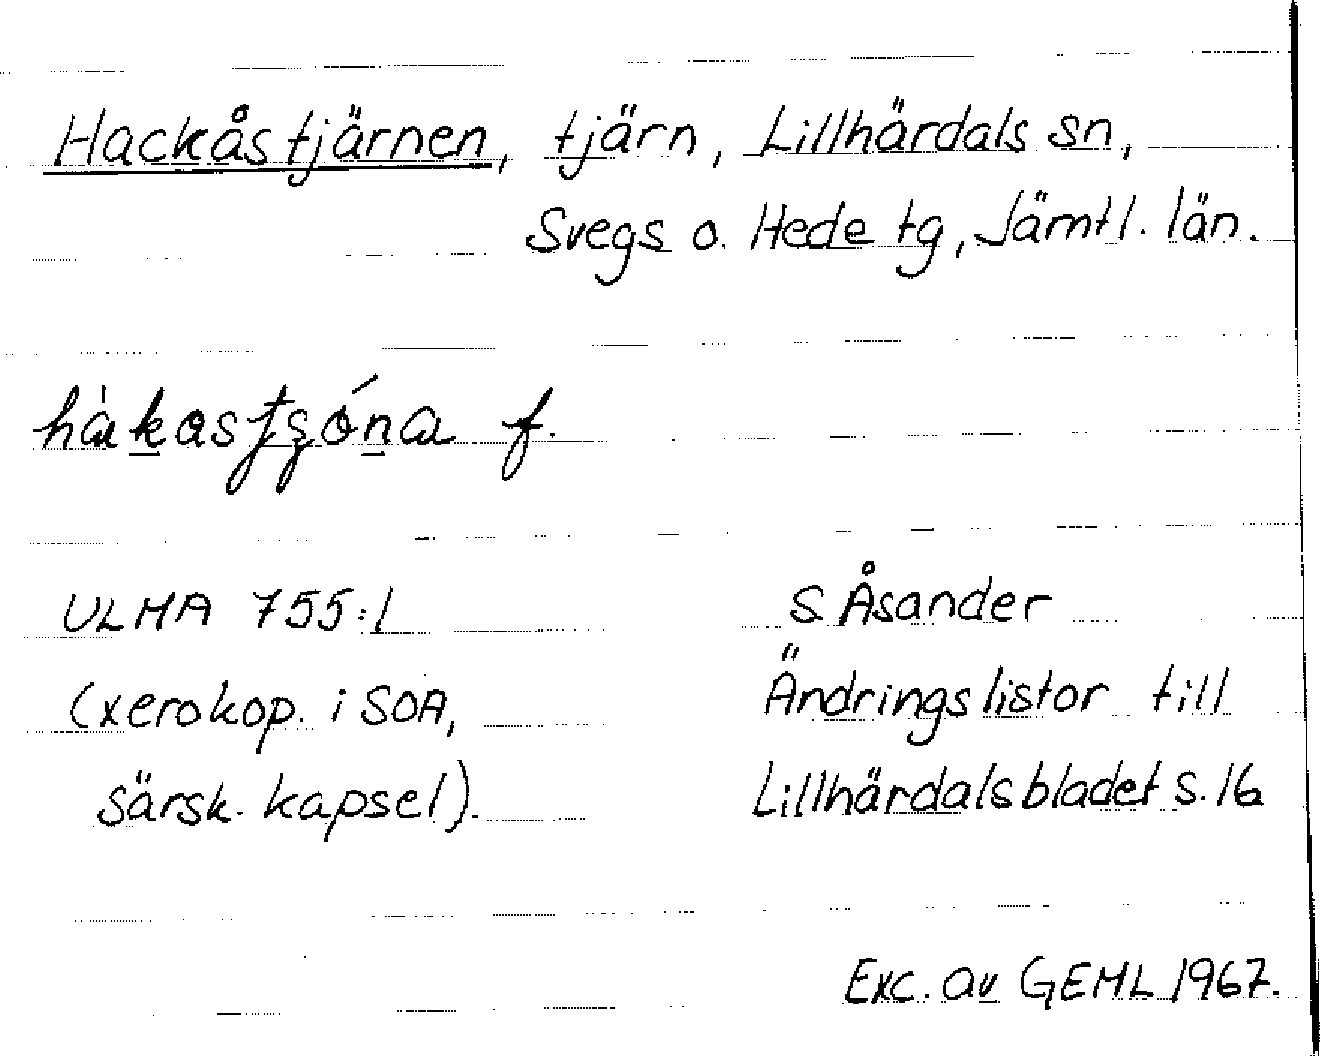 Hackåstjärnen, tjärn, Lillhärdals sn,
Svegs o. Hede tg, Jämtl. län.
f.
ULMA 755:1
(xerokop. i SOA,
särsk. kapsel).
S Åsander
Ändringslistor till
Lillhärdalsbladet s. 16
Exc. av GEML 1967.